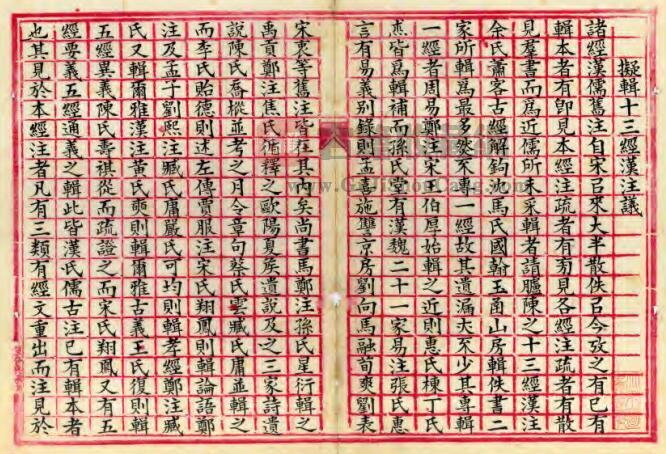 擬輯十三經漢注議
諸經漢儒舊注自宋㠯來大半散佚㠯今攷之有已有
輯本者有卽見本經注疏者有㪚見各經注疏者有散
見羣書而爲近儒所未采輯者請臚陳之十三經漢注
余氏蕭客古經解鉤沈馬氏國翰玉函山房輯佚書二
家所輯爲最多然不專一經故其遺漏夫不少其專輯
一經者周易鄭注宋王伯厚始輯之近則惠氏棟丁氏
杰皆爲輯補而孫氏堂有漢魏二十一家易注張氏惠
言有易義別錄則孟喜施讐京房劉向馬融荀爽劉表
宋衷等舊注皆在其內矣尚書馬鄭注孫氏星衍輯之
禹貢鄭注焦氏循釋之歐陽夏矦遺說及之三家詩遺
說陳氏喬樅並考之月令章句蔡氏雲臧氏庸並輯之
而李氏貽德則述左傳賈服注宋氏翔鳳則輯論語鄭
注及孟子劉熙注臧氏庸嚴氏可均則輯孝經鄭注臧
氏又輯爾雅漢注黃氏奭則輯爾雅古義王氏復則輯
五經異義陳氏壽祺從而疏證之而宋氏翔鳳又有五
經要義五經通義之輯此皆漢氏儒古注已有輯本者
也其見於本經注者凡有三類有經文重出而注見於